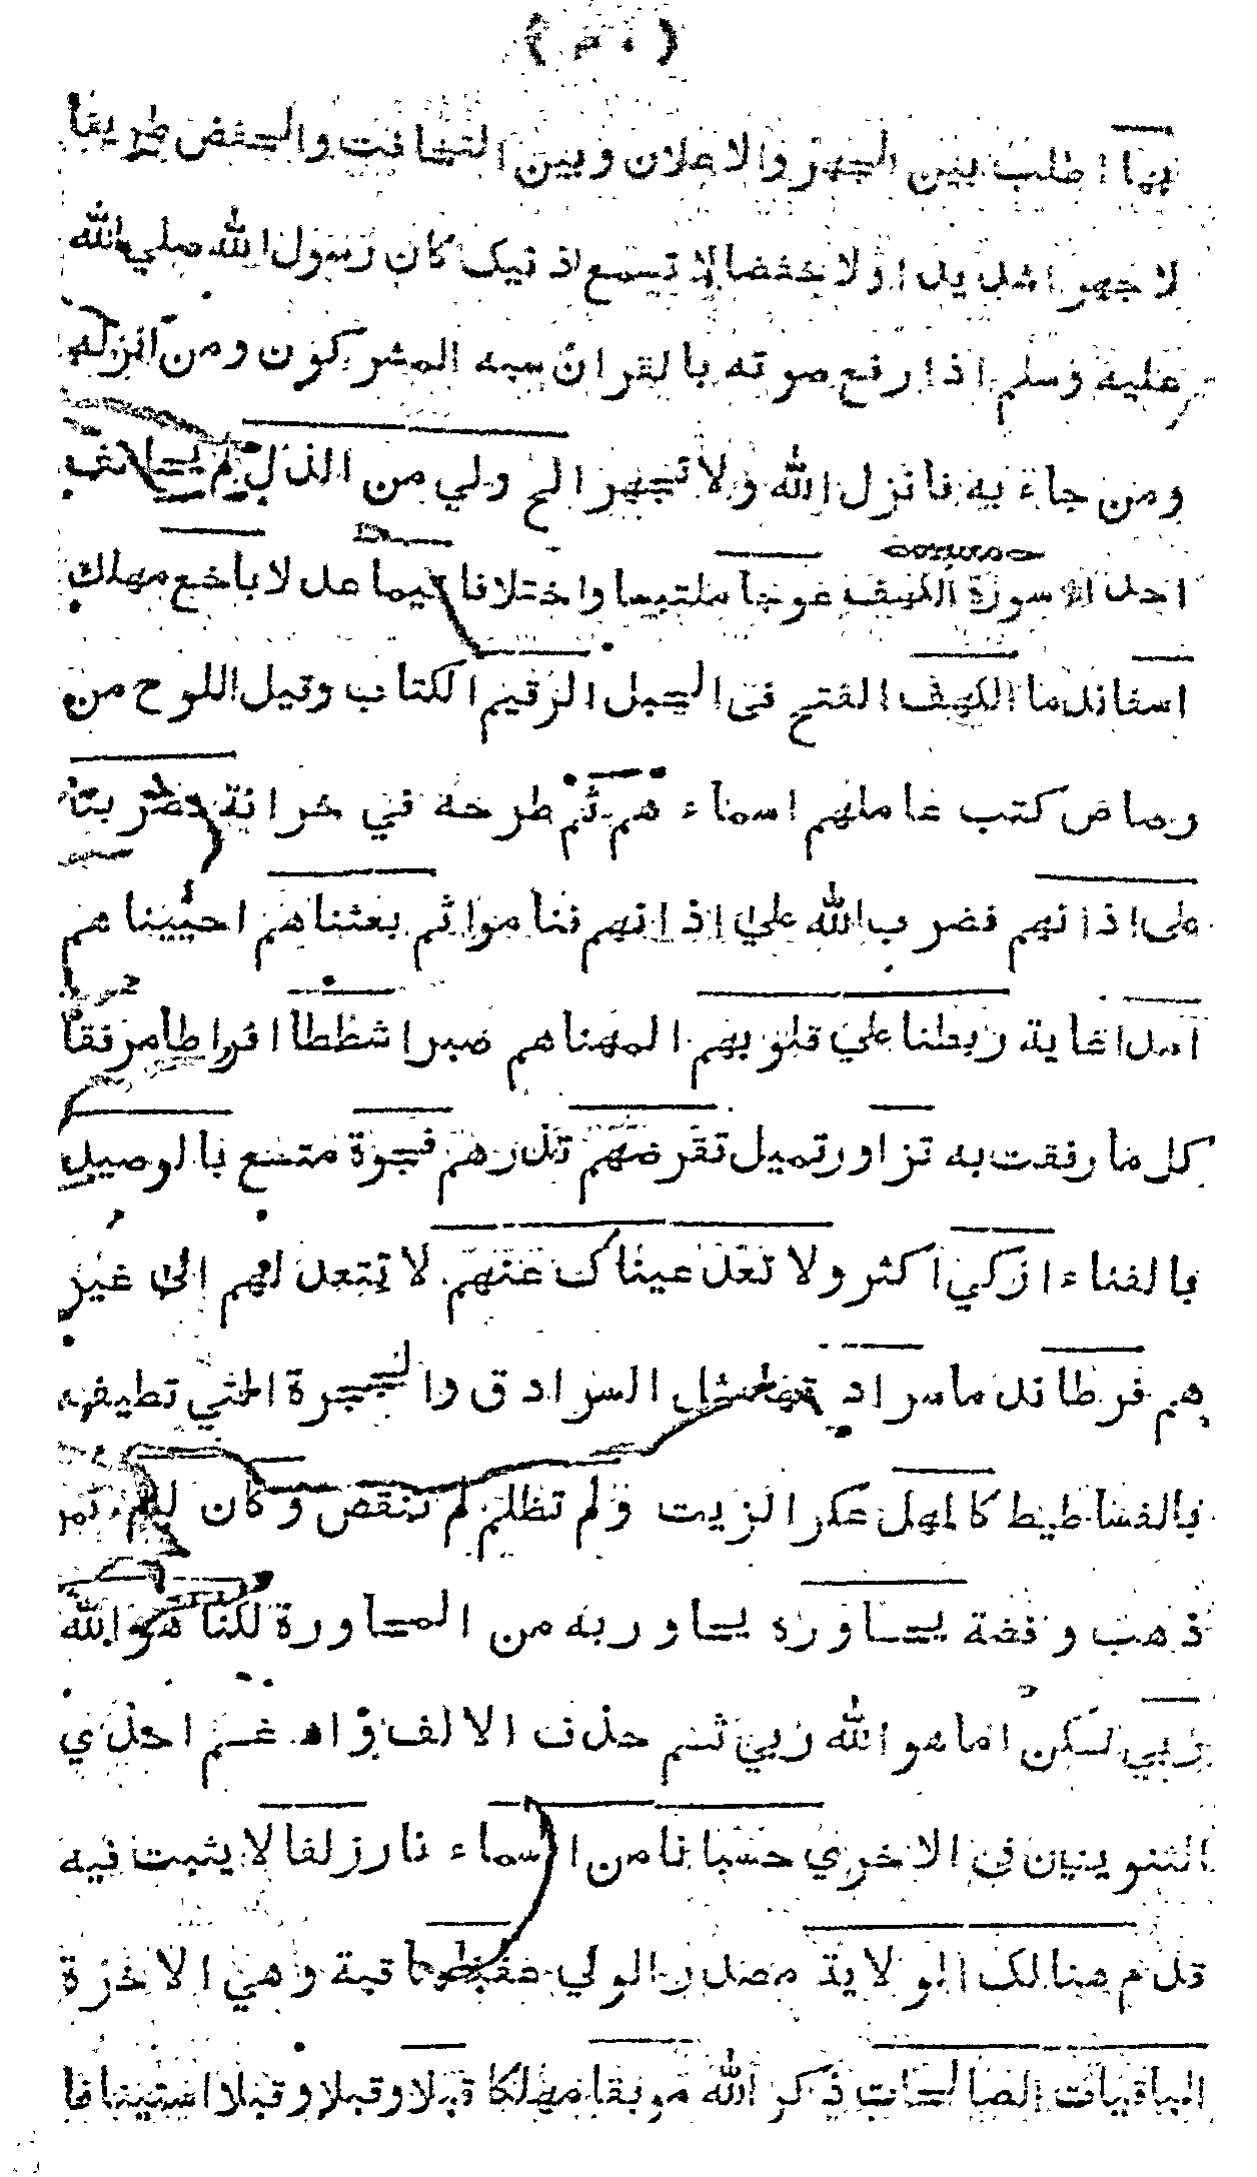 بها اطلب بين الجهر والاعلان وبين التخافت والخفض طريقا
لا جهرا شديدا ولا خفضا لا تسمع اذنيك كان رسول الله صلي الله
عليه وسلم اذا رفع صوته بالقران سبه المشركون ومن انزله
ومن جاء به فانزل الله ولا تجهر الخ ولي من الذل لم يحالف
احدا سورة الكهف عوجا ملتبسا واختلافا قيما عدلا باخع مهلك
اسفا ندما الكهف الفتح في الجبل الرقيم الكتاب وقيل اللوح من
رصاص كتب عاملهم اسماء هم ثم طرحه في خزانة فضربنا
على اذانهم فضرب الله علي اذانهم فناموا ثم بعثناهم احيينا هم
امدا غاية ربطنا علي قلوبهم الهمناهم صبرا شططا افراطا مرفقا
كل ما رفقت به تزاور تميل تقرضهم تذرهم فجوة متسع بالوصيد
بالفناء ازكي اكثر ولا تعد عيناك عنهم لا تتعد لهم الى غير
هم فرطا ندما سرادقها مثل السرادق والحجرة التي تطيف به
بالفساطيط كالمهل عكر الزيت ولم تظلم لم تنقص وكان له ثمر
ذهب وفضة يحاوره يحاور به من المحاورة لكنا هو الله
ربي لكن انا هو الله ربي ثم حذف الالف وادغم احدي
النونين في الاخري حسبانا من السماء نارا زلفا لا يثبت فيه
قدم هنالك الولاية مصدر الولي عقبا عاقبة وهي الاخرة
الباقيات الصالحات ذكر الله موبقا مهلكا قبلا وقبلا وقبلا استينافا